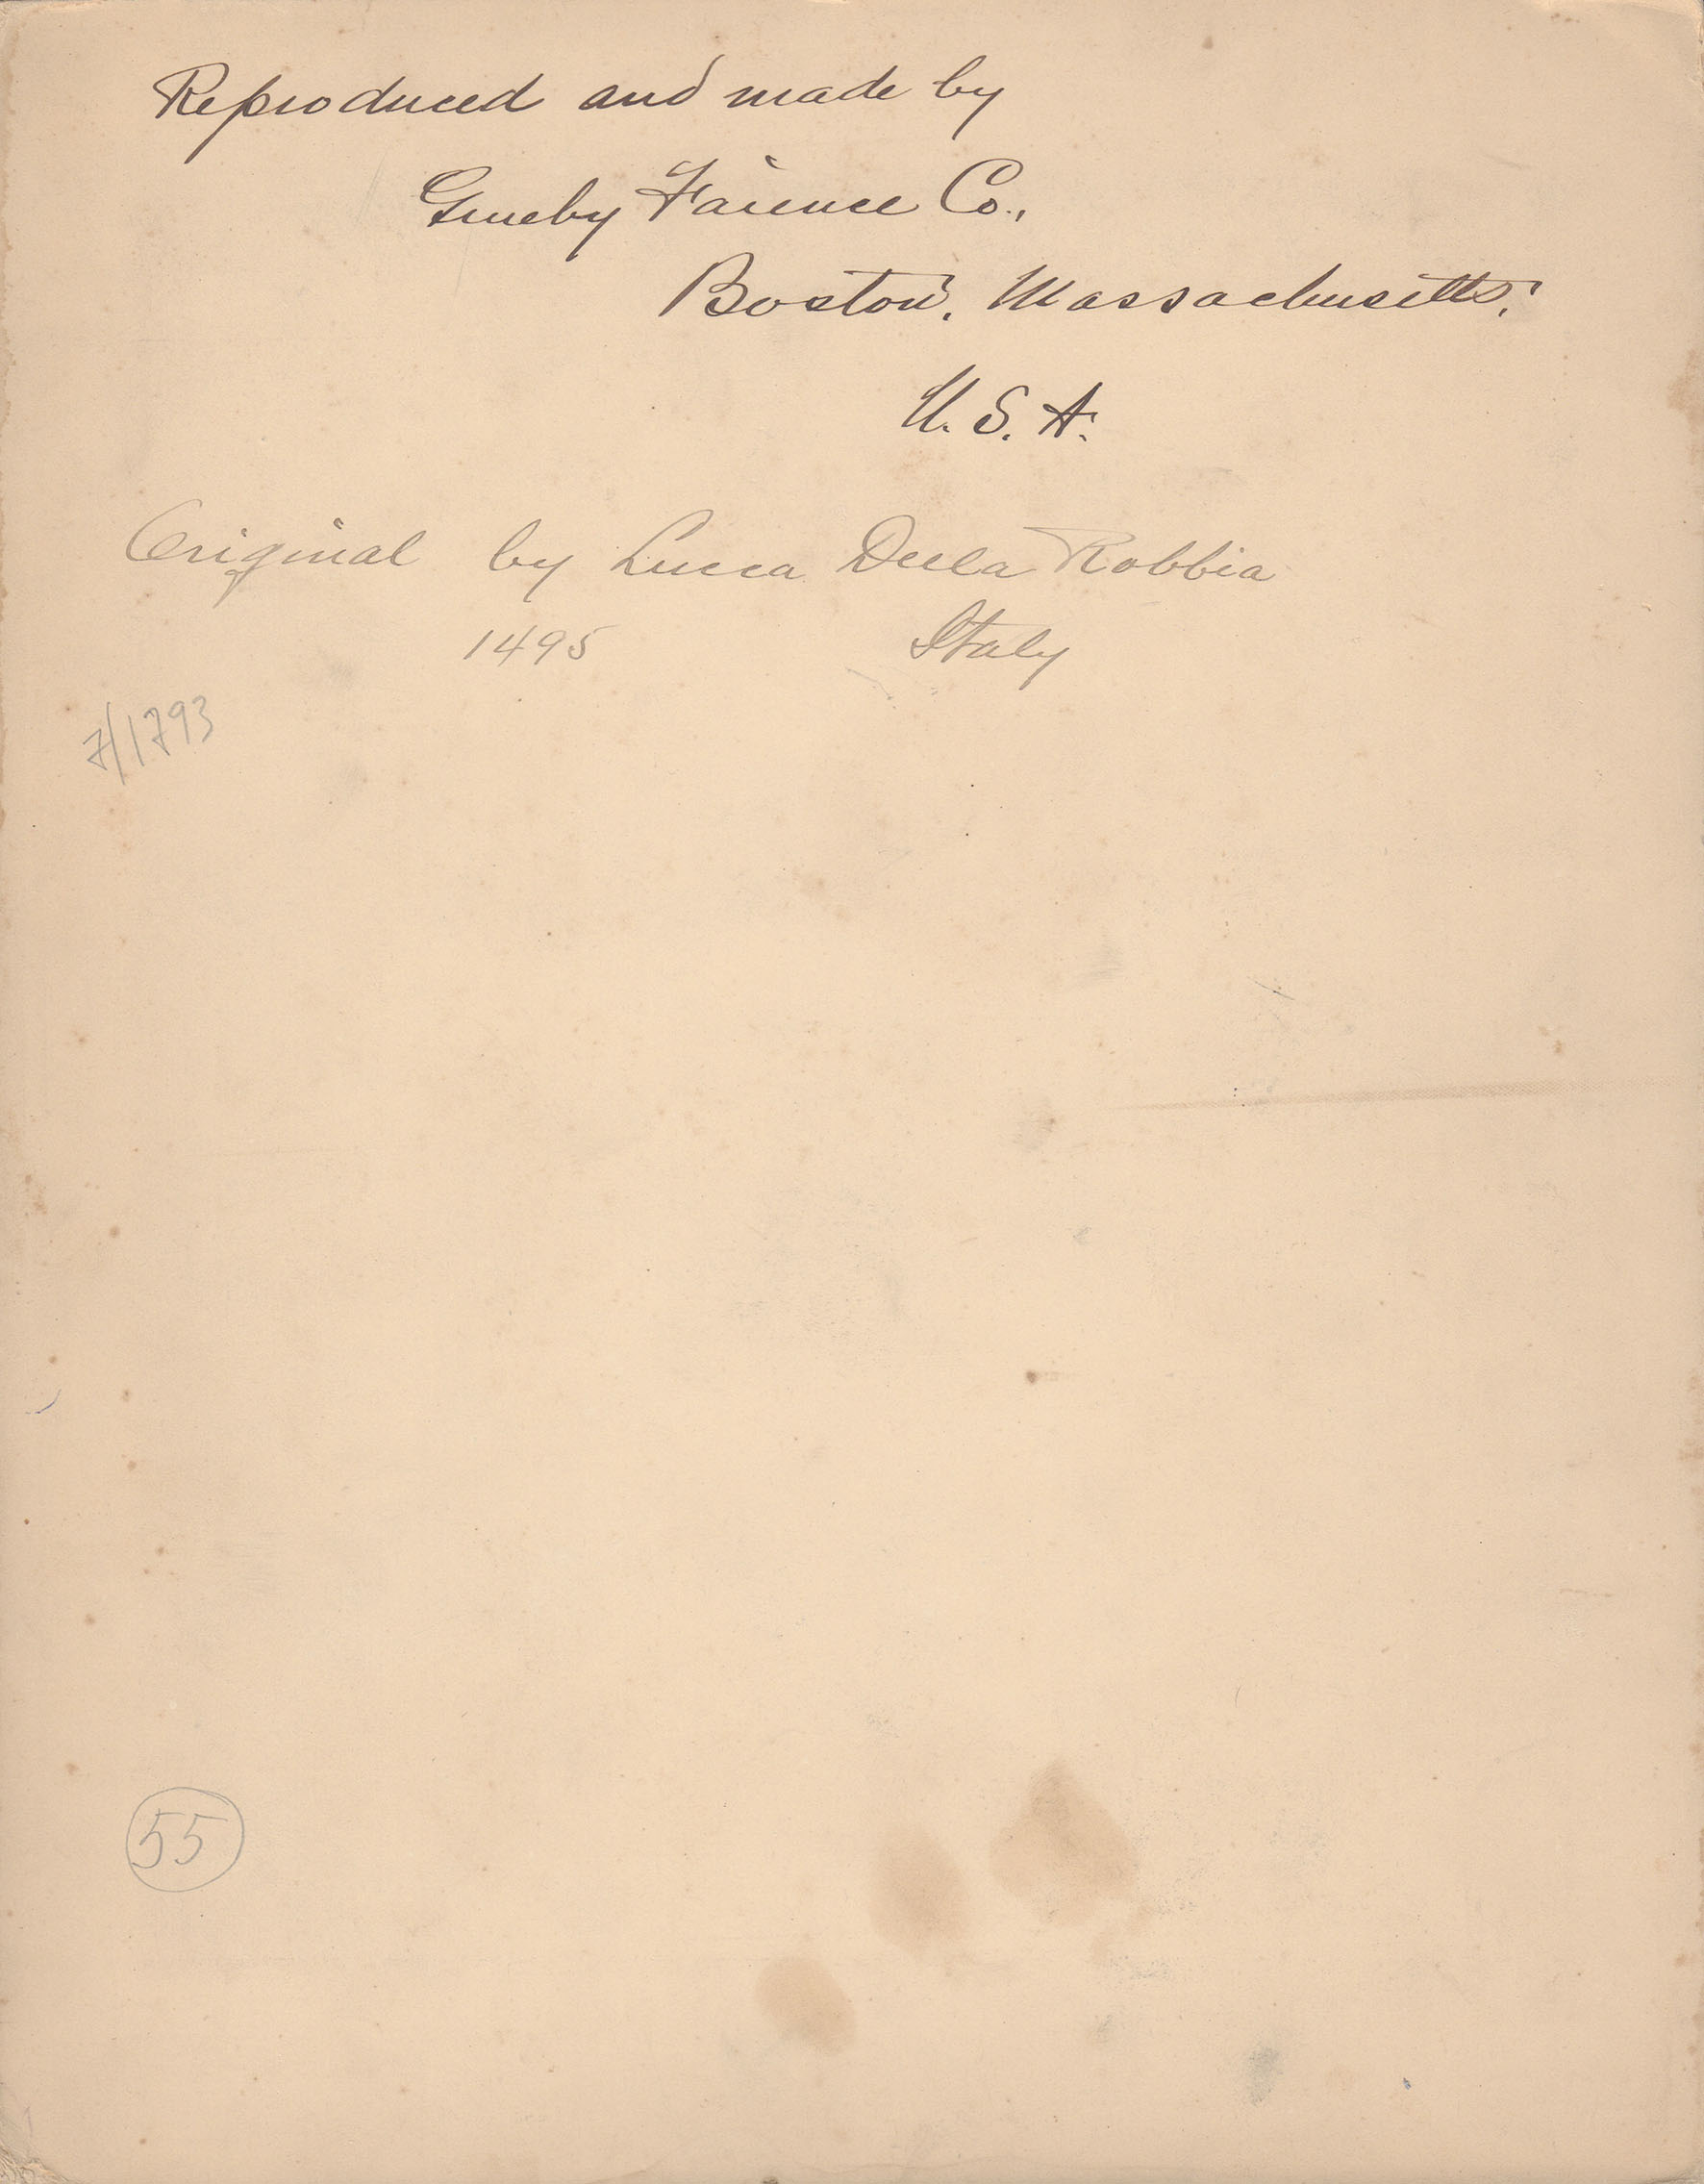 Reproduced and made by
Grueby Faience Co.,
Boston, Massachusetts,
U. S. A.
Original by Lucca Della Robbia
1495 Italy
7/1793
55